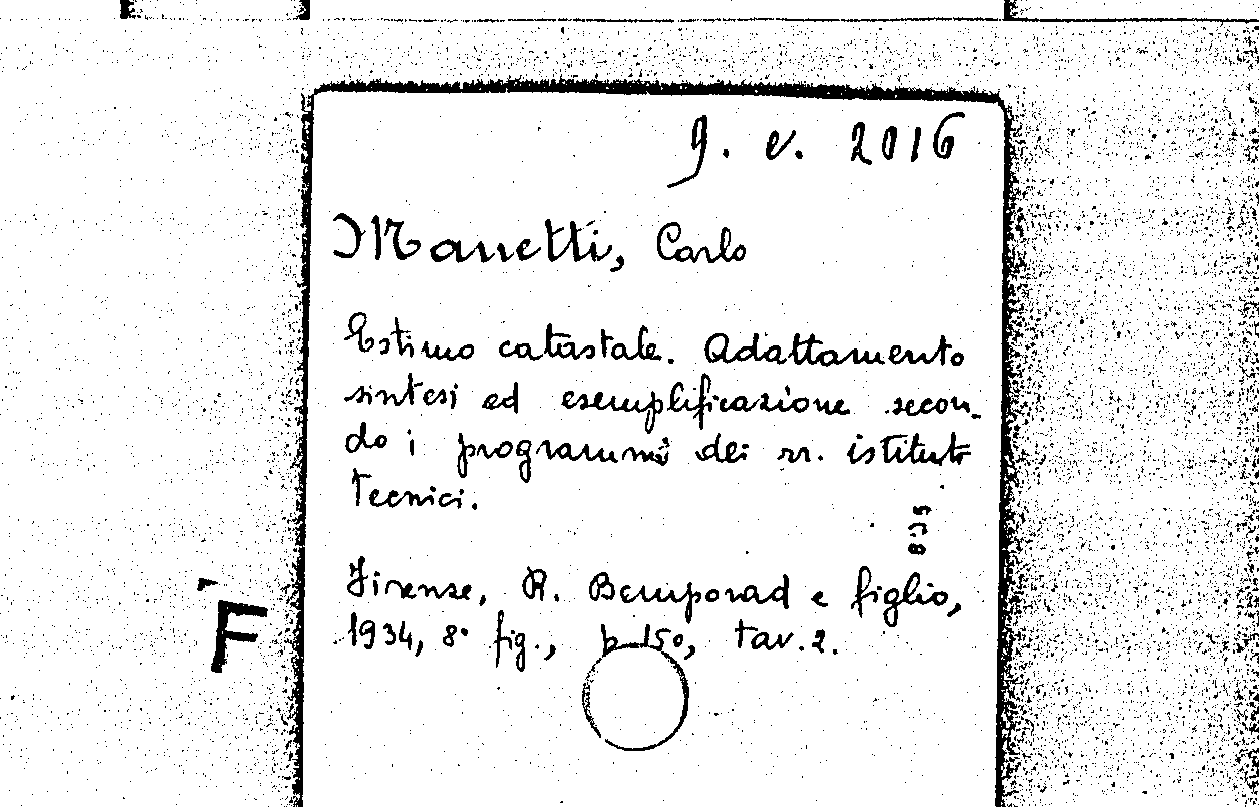 g. e. 2016
Manetti, Carlo
Estimo catastale. Adattamento
sintesi ed esemplificazione secon-
do i programmi dei rr. istituti
tecnici.
Firenze, R. Bemporad e figlio,
1934, 8° fig., p 150, tav. 2.
F